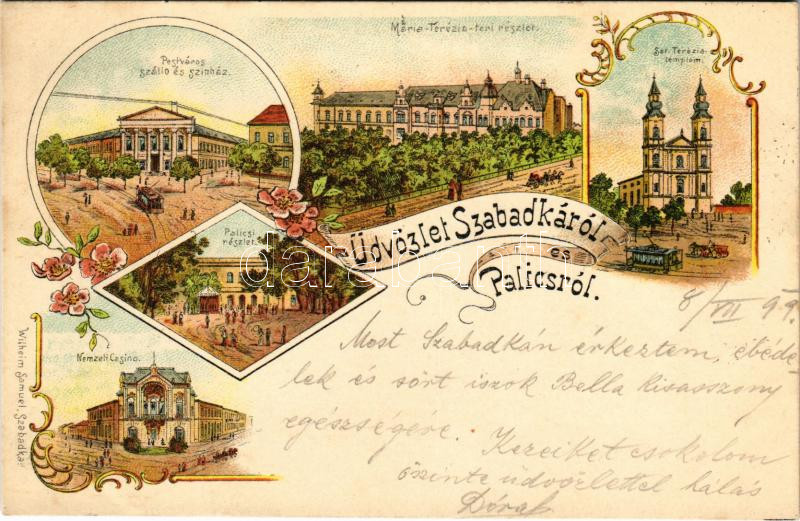 Mária-Terézia-teri részlet.
Pestváros
szálló és szinház.
Szt. Terézia-
templom.
Palicsi
részlet.
Üdvözlet Szabadkáról
és
Palicsról.
Nemzeti Casino.
Wilheim Samuel, Szabadka.
8/VII 99.
Most Szabadkán érkeztem, ebéde-
lek és sört iszok Bella kisasszony
egészségére. Kezeiket csokolom
őszinte üdvözlettel hálás
darabanth